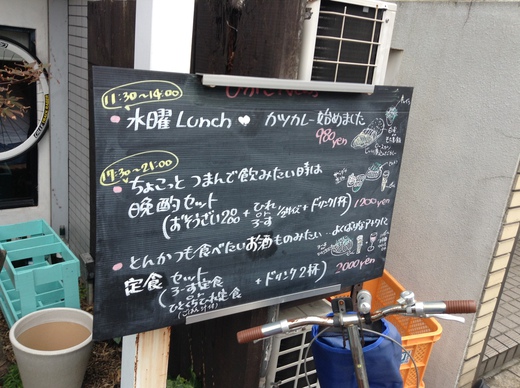 11:30〜14:00
水曜Lunch♥ カツカレー始めました
980yen
17:30〜21:00
ちょこっとつまんで飲みたい時は
晩酌セット
(おそうざい2品+ひれorろーす+ドリンク1杯) 1200yen
とんかつも食べたいお酒ものみたい…よくばりなアナタに
定食セット
(ろーす定食orひとくちひれ定食+ドリンク2杯) 2000yen
(ごはん付)